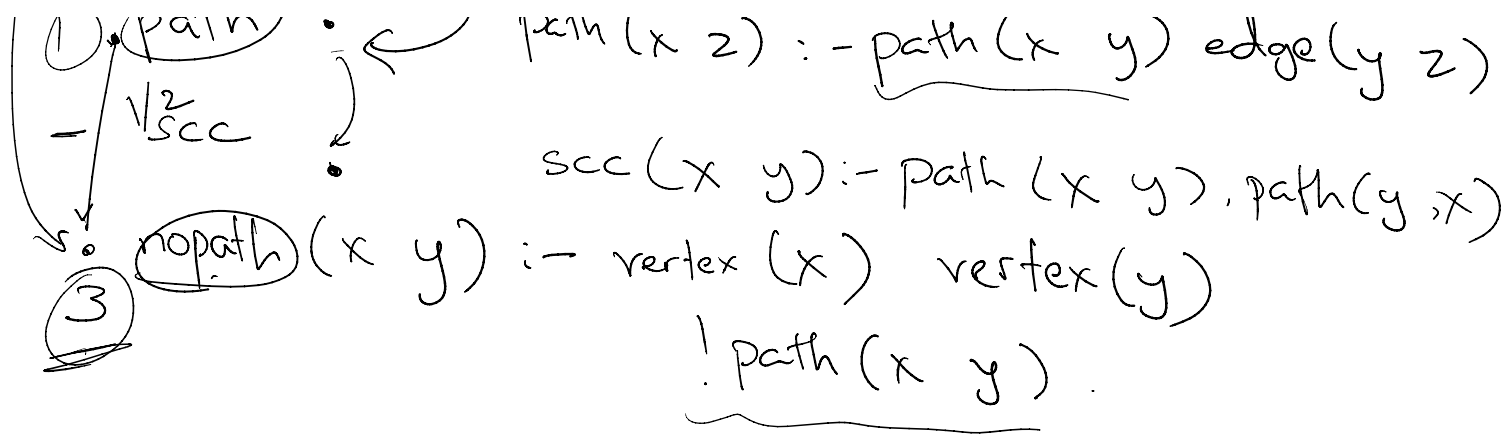 1 path path(x z) :- path(x y) edge(y z)
2
scc
scc(x y) :- path(x y), path(y,x)
nopath(x y) :- vertex(x) vertex(y)
3
! path(x y).